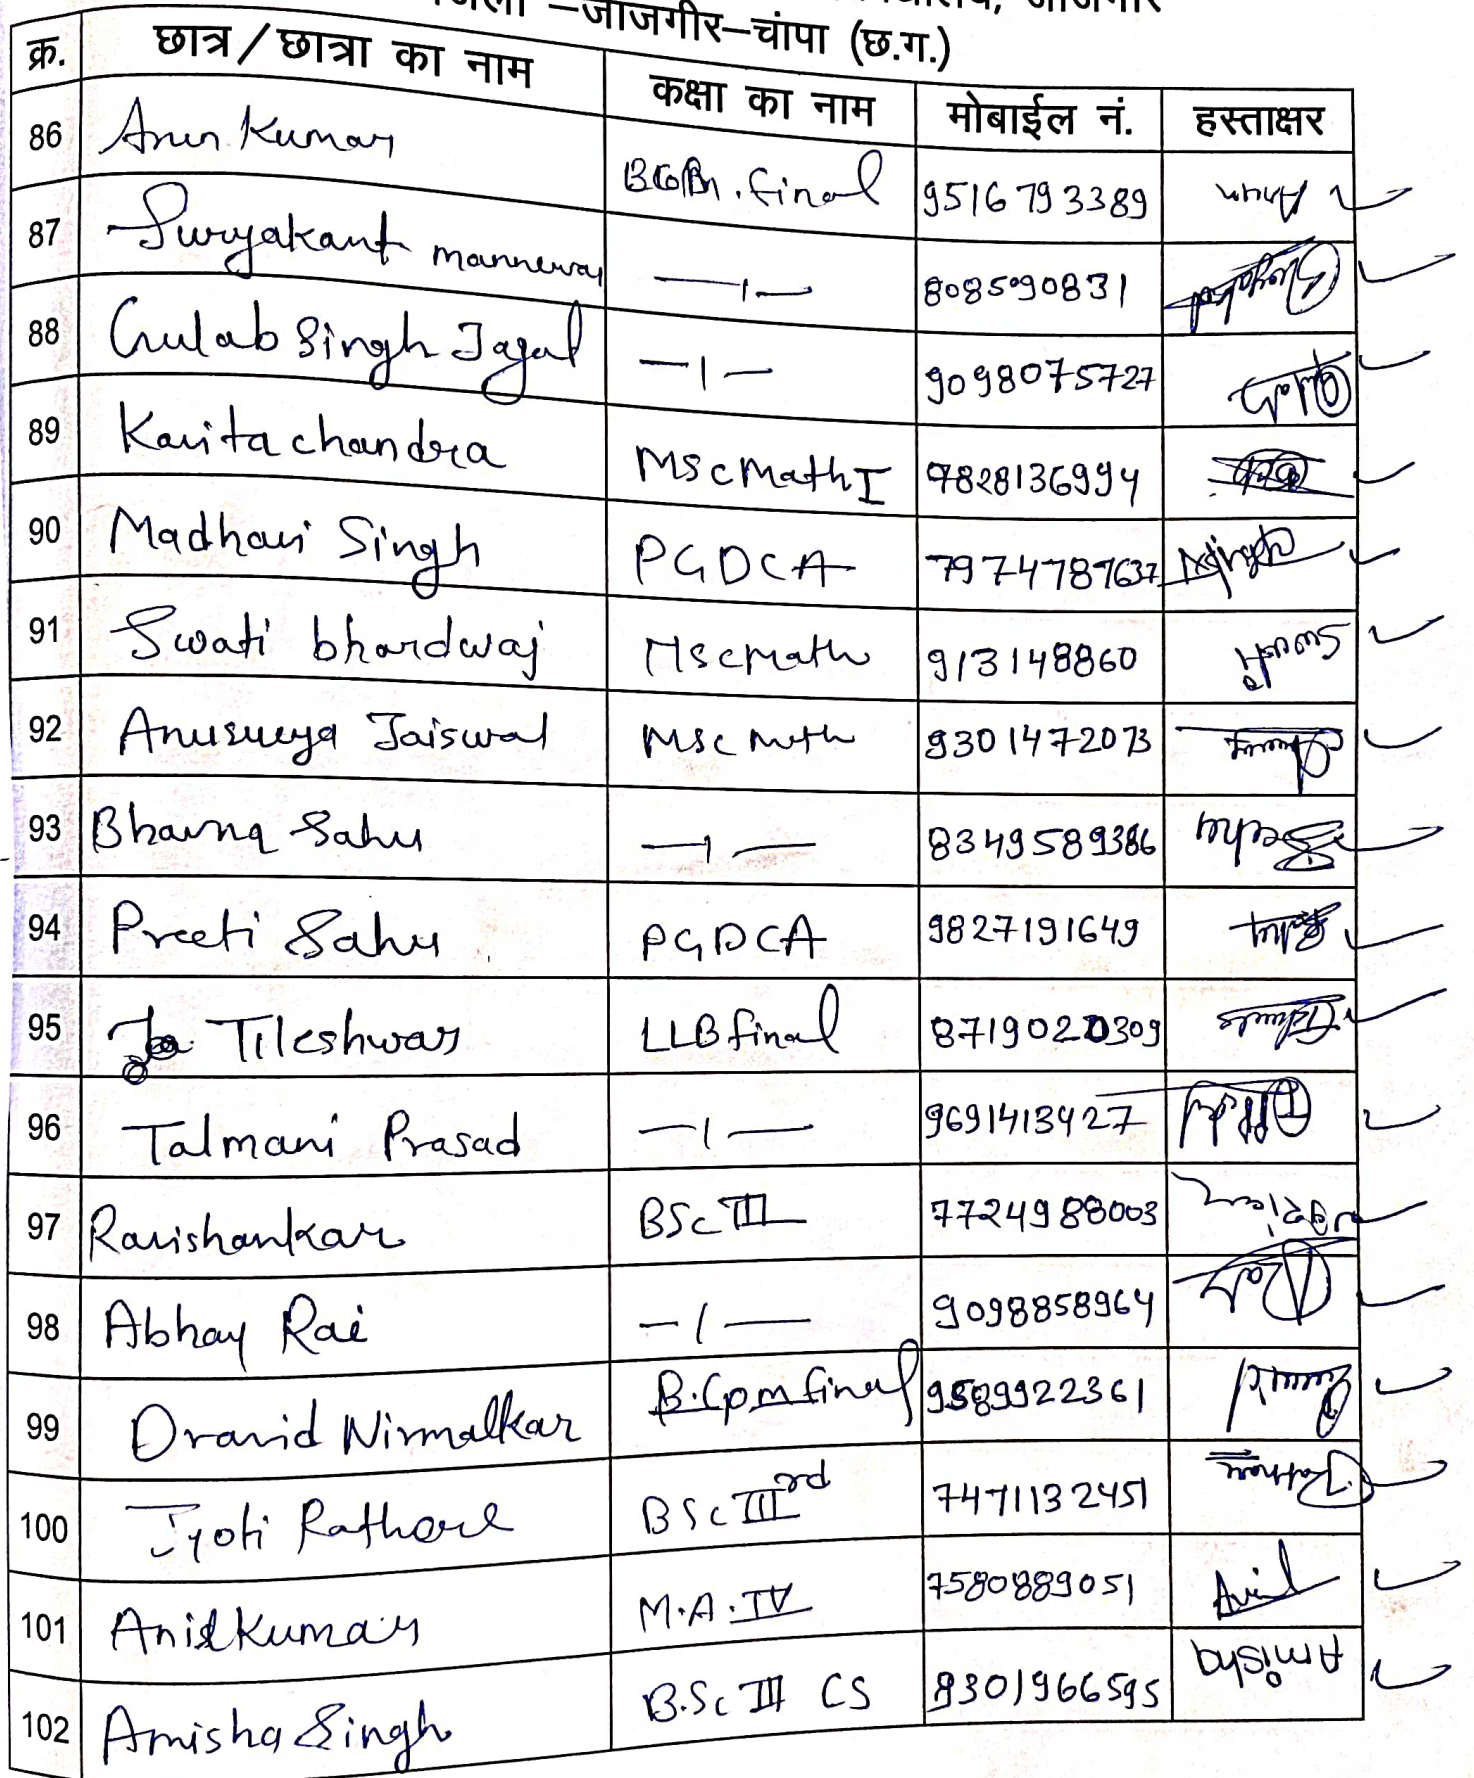 जिला –जांजगीर–चांपा (छ.ग.)
क्र. छात्र/छात्रा का नाम कक्षा का नाम मोबाईल नं. हस्ताक्षर
86 Arun Kumar final 9516793389 Arun
87 Suryakant —ı— 808590831
88 Gulab Singh —ı— 9098075727
89 Kavita chandra MscMath I 9828136994
90 Madhavi Singh PGDCA Singh
91 Swati bhardwaj MscMath 913148860 Swati
92 Anusueya Jaiswal Msc Math 9301472073
93 Bhavna Sahu —ı— 8349589386
94 Preeti Sahu PGDCA 9827191649
95 Tileshwar LLB final 8719020309
96 Talmani Prasad —ı— 9691413427
97 Ravishankar BSc III 7724988003
98 Abhay Rai —ı— 9098858964
99 Dravid Nirmalkar B.Com final 9589922361
100 Jyoti Rathore BSc IIIrd 7471132451 Rathore
101 Anil Kumar M.A. IV 7580889051 Anil
102 Amisha Singh B.Sc III CS 9301966595 Amisha